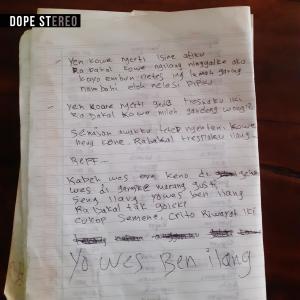 DOPE STEREO
Yen kowe ngerti isine atiku
Ra bakal kowe ngilang ninggalke aku
koyo embun netes ing lemah garing
nambahi eloh netesi pipiku
Yen kowe ngerti tresnaku iki
Ra bakal kowe milih gandeng wong
Senason awakku tetep ngenteni kowe
neng kene. Ra bakal tresnaku ilang
Reff...
Kabeh wes ora keno di
wes di gariske marang gusti
Seng ilang yowes ben ilang
Ra bakal tak goleki
cukup semene, crito Riwayat iki
Yo wes Ben ilang